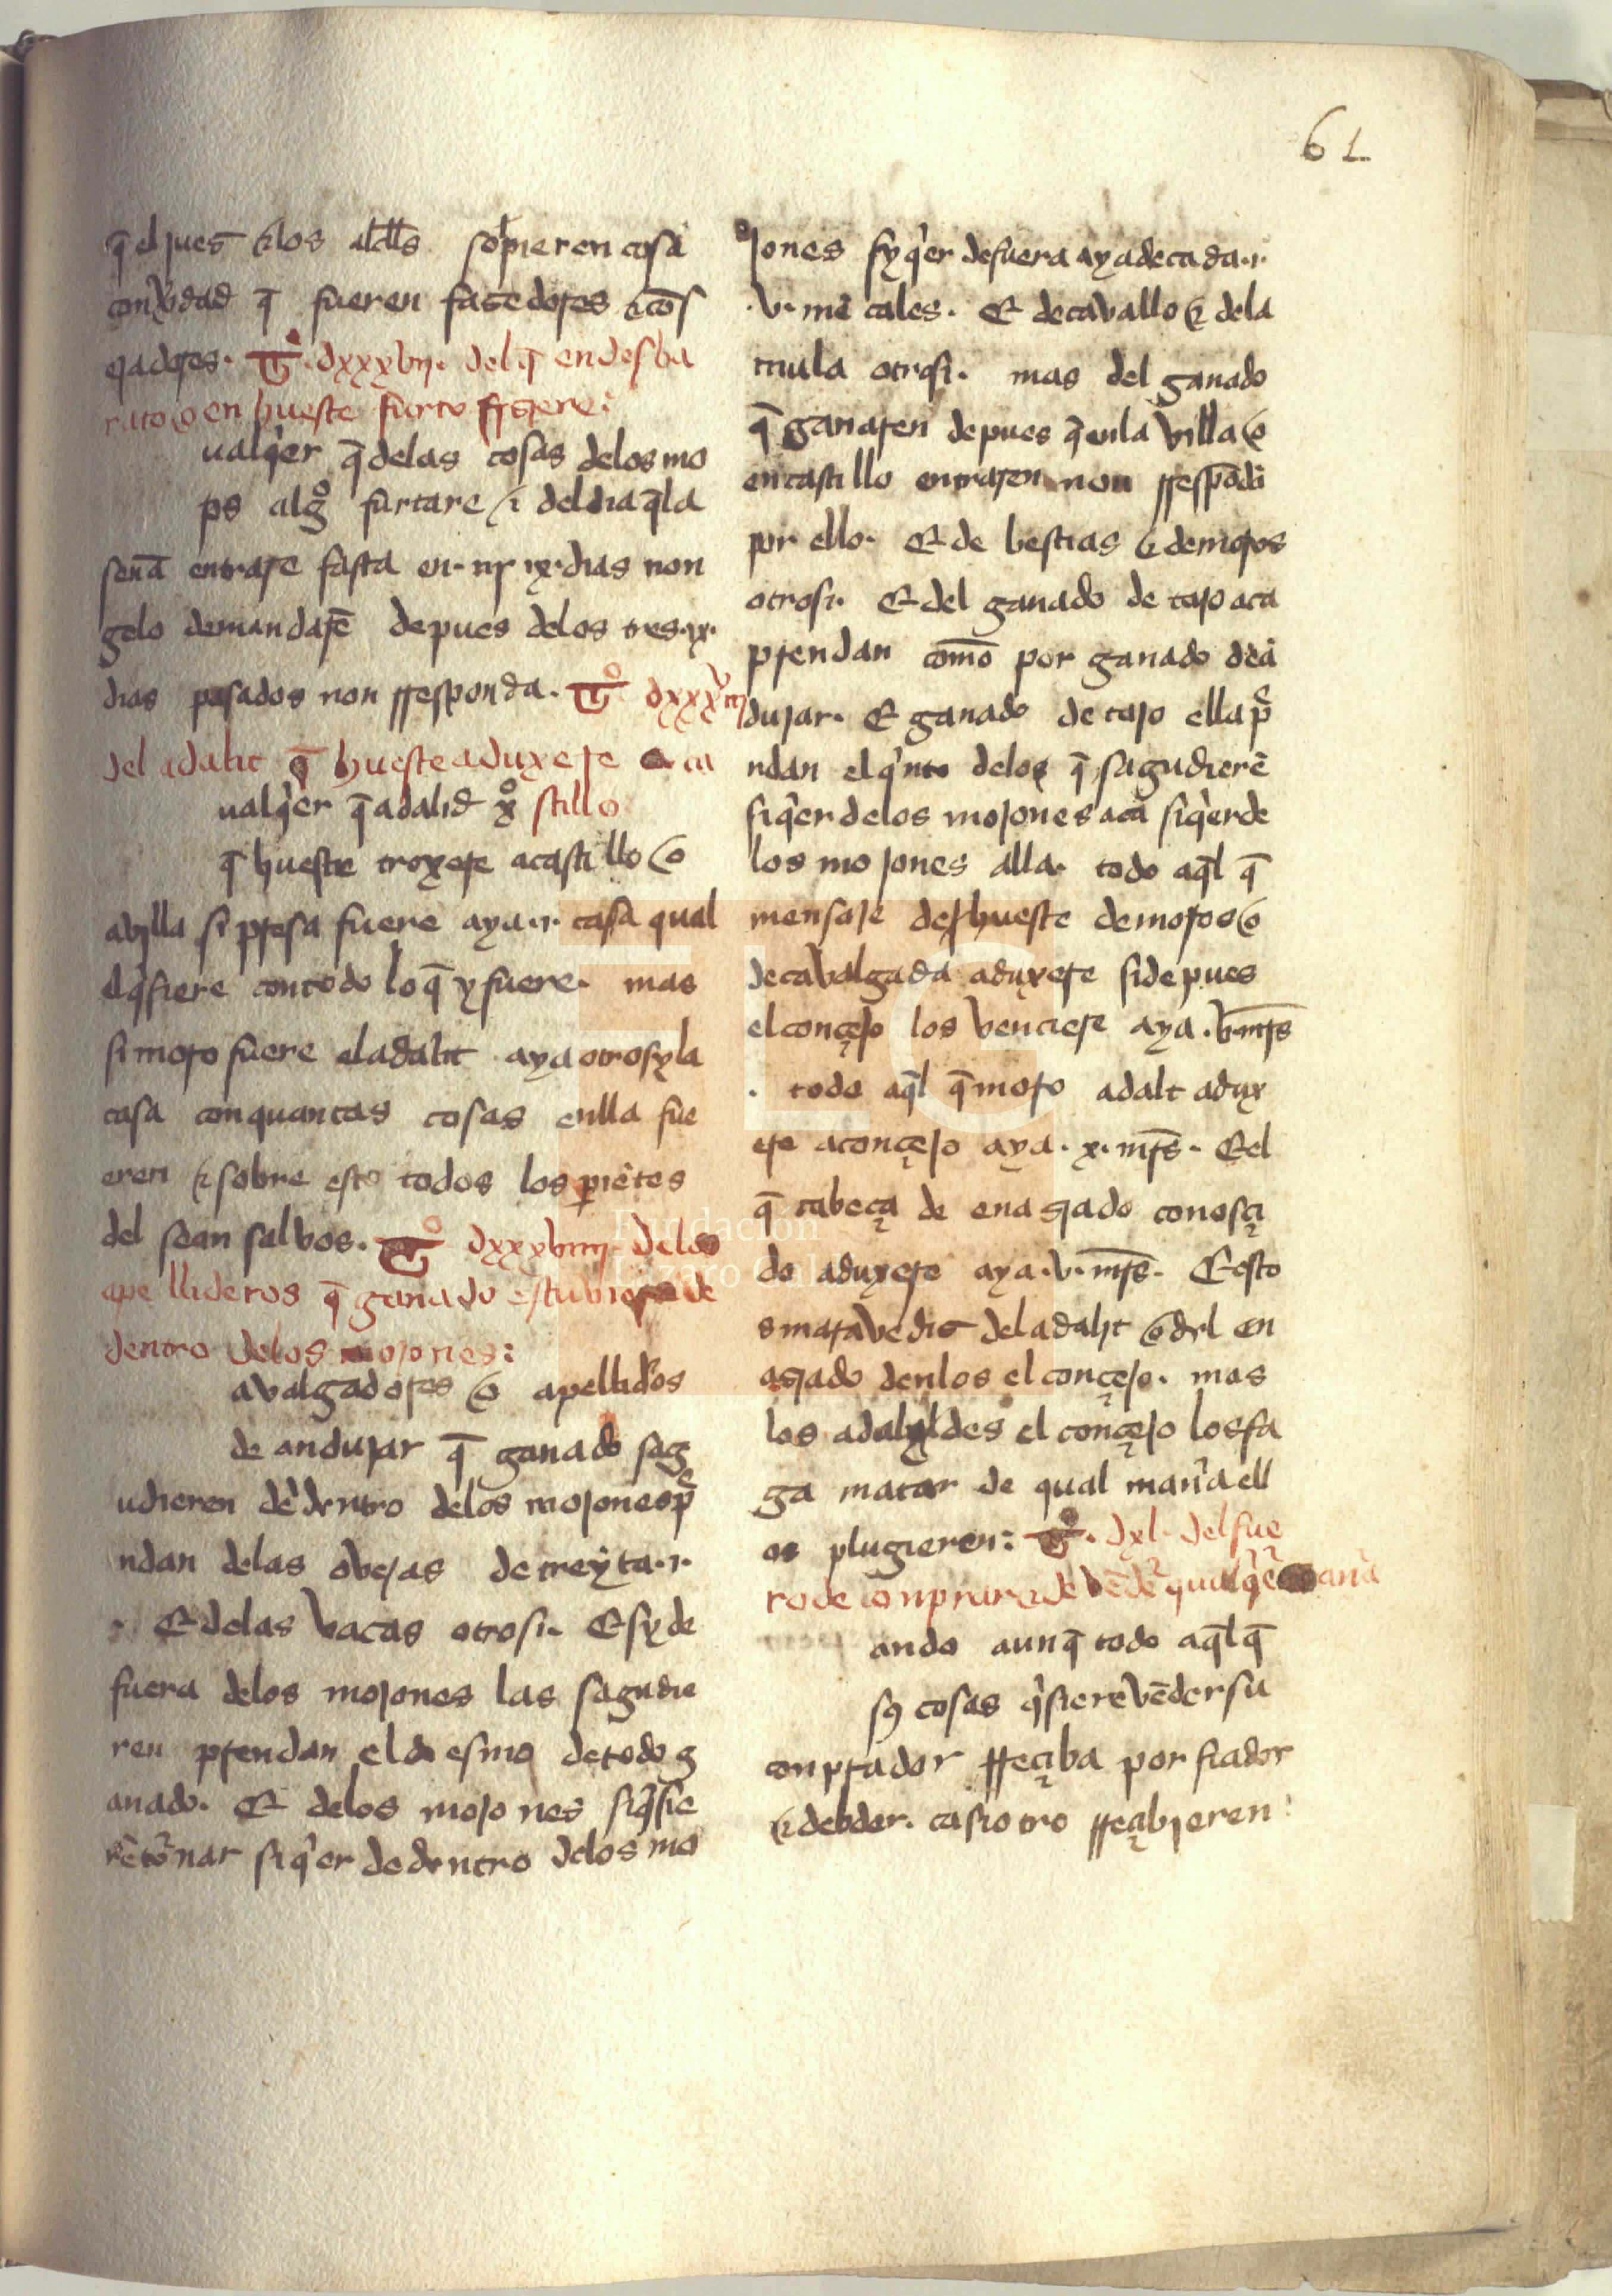 61
q̄ el jues e los alcll̄s sopieren cosa
con v̉dad q̄ fueren fazedores e cōs
ejadores. Tº. dxxxvij. del q̄ en desba
rato o en hueste furto fiziere:
ualq̉er q̄ delas cosas delos mo
ros algº furtare e del dia q̄ la
senā entrare fasta en. iij ix. dias non
gelo demandarē depues delos tres. ix.
dias pasados non rresponda. Tº dxxxviij
del adalit q̄ hueste aduxere a ca
stillo
ualq̉er q̄ adalid xº
q̄ hueste troxere a castillo o
a villa si presa fuere aya .i. casa qual
el q̉siere con todo lo q̄ y fuere. mas
si moro fuere el adalit aya otrosy la
casa con quantas cosas enlla fue
eren e sobre esto todos los pariētes
del sean salvos. Tº dxxxviiij delos
apellideros q̄ ganado estubiere de
dentro delos mojones:
avalgadores o apellid̉os
de andujar q̄ ganado sag
udieren de dentro delos mojones p̉
ndan delas ovejas de treyta .i.
. E delas vacas otrosi. E sy de
fuera delos mojones las sagudie
ren prendan el diesmo de todo g
anado. E delos mojones si q̉sie
re tornar si q̉er de dentro delos mo
jones sy q̉er de fuera aya de cada .i.
.v. mē cales. E de cavallo e dela
mula otrosi. mas del ganado
q̄ ganaren depues q̄ enla villa o
en castillo entraren non rrespōdā
por ello. E de bestias e de moros
otrosi. E del ganado de tajo aca
prendan comō por ganado de ā
dujar. E ganado de tajo ella p̉
ndan el q̉nto delos q̄ sagudierē
si q̉er delos mojones aca si q̉er de
los mojones alla. todo aq̄l q̄
mensaje de hueste de moros o
de cavalgada aduxere si depues
el conçejo los venciere aya .v. mr̄s
. todo aq̄l q̄ moro adalt adux
ere a conçejo aya .x. mr̄s. E el
q̄ cabeça de enaziado conosçi
do aduxere aya .v. mr̄s. E esto
s maravedis del adalit o del en
aziado denlos el conçejo. mas
los adalyldes el conçejo los fa
ga matar de qual man̉a ell
os plugieren: Tº. dxl. del fue
ro de conprar e de vēde̓ qualq̉e man̉a
ando aunq̄ todo aq̄l q̄
sus cosas q̉siere vēder su
conprador rreçiba por fiador
e debdor. ca si otro rreçibieren: